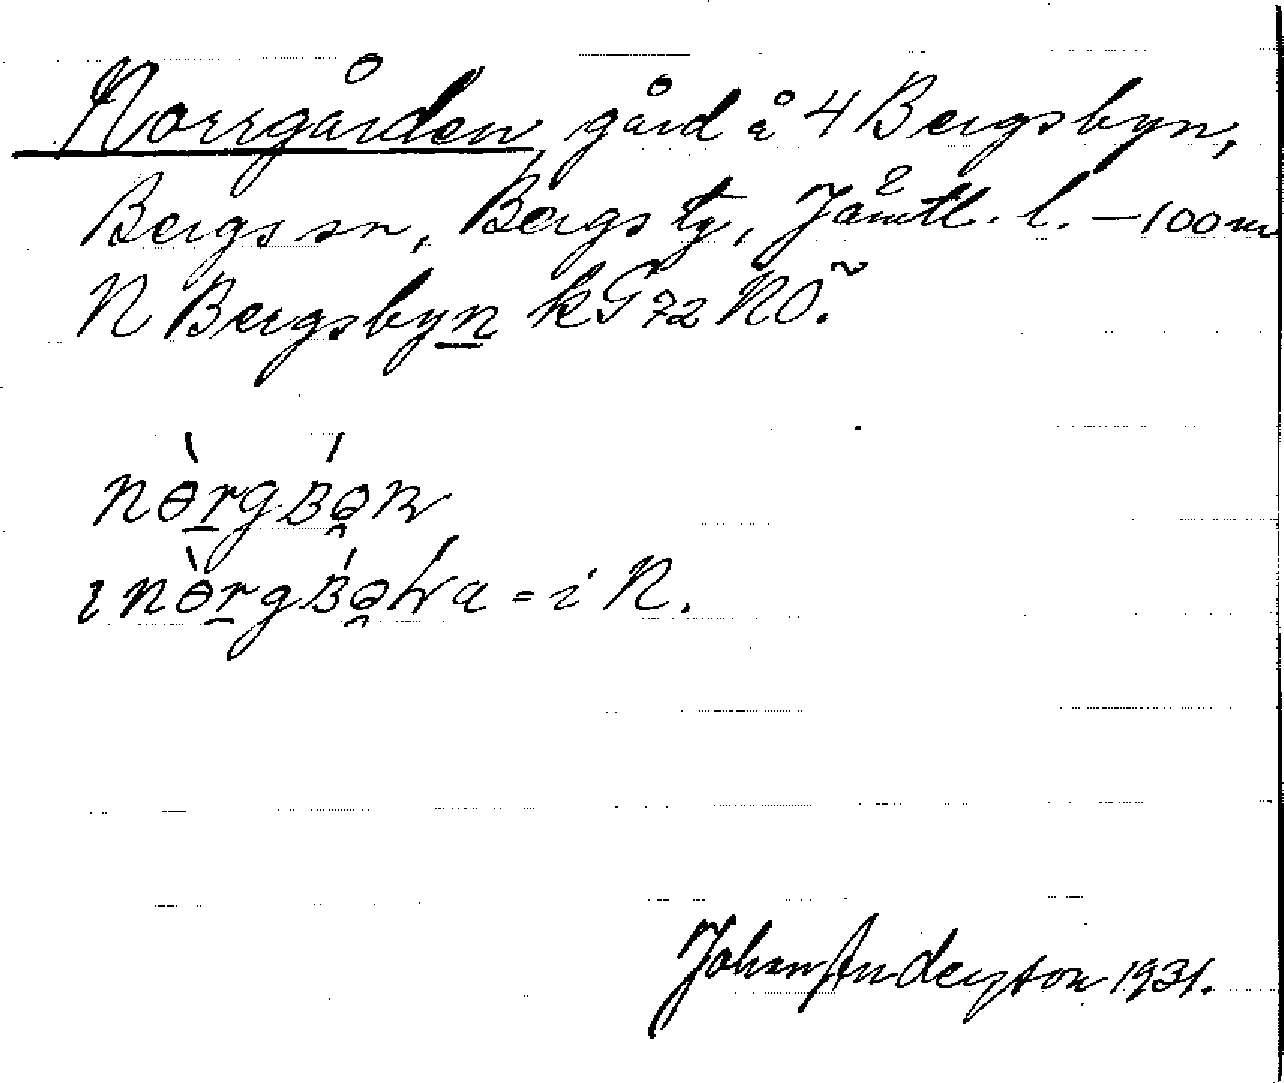 Norrgården, gård å 4 Bergsbyn,
Bergs sn, Bergs tg, Jämtl. l. – 100 m
N Bergsbyn k G 72 NO.
= i N.
Johan Andersson 1931.